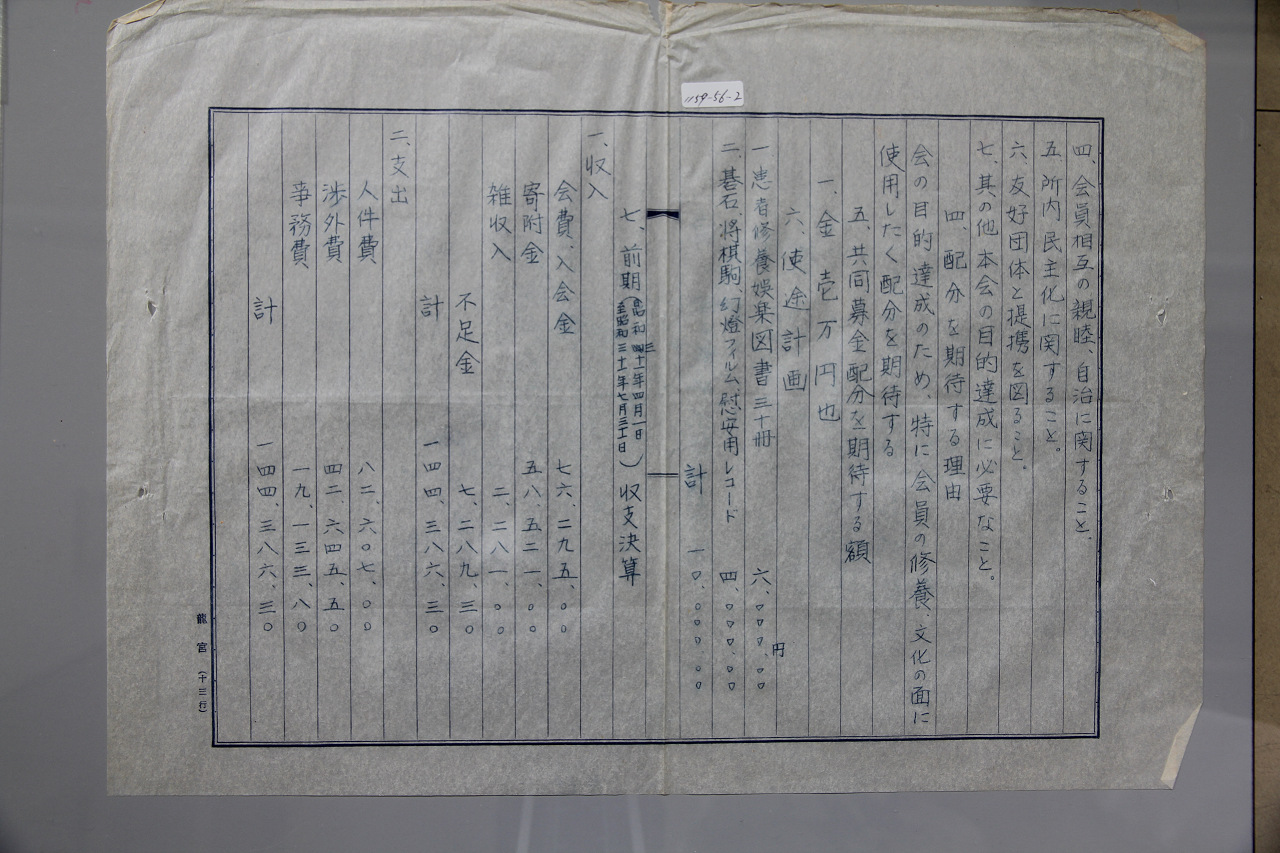 1159-56-2
四、会員相互の親睦、自治に関すること、
五、所内民主化に関すること。
六、友好団体と提携を図ること。
七、其の他本会の目的達成に必要なこと。
四、配分を期待する理由
会の目的達成のため、特に会員の修養、文化の面に
使用したく配分を期待する
五、共同募金配分を期待する額
一、金壱万円也
六、使途計画
一、患者修養娯楽図書三十冊 六、〇〇〇、〇〇円
二、碁石、将棋駒、幻燈フィルム、慰安用レコード 四、〇〇〇、〇〇
計 一〇、〇〇〇、〇〇
七、前期(昭和三十一年四月一日 至昭和三十一年七月三十日)収支決算
一、収入
会費、入会金 七六、二九五、〇〇
寄附金 五八、五二一、〇〇
雑収入 二、二八一、〇〇
不足金 七、二八九、三〇
計 一四四、三八六、三〇
二、支出
人件費 八二、六〇七、〇〇
渉外費 四二、六四五、五〇
事務費 一九、一三三、八〇
計 一四四、三八六、三〇
龍宮(十三行)